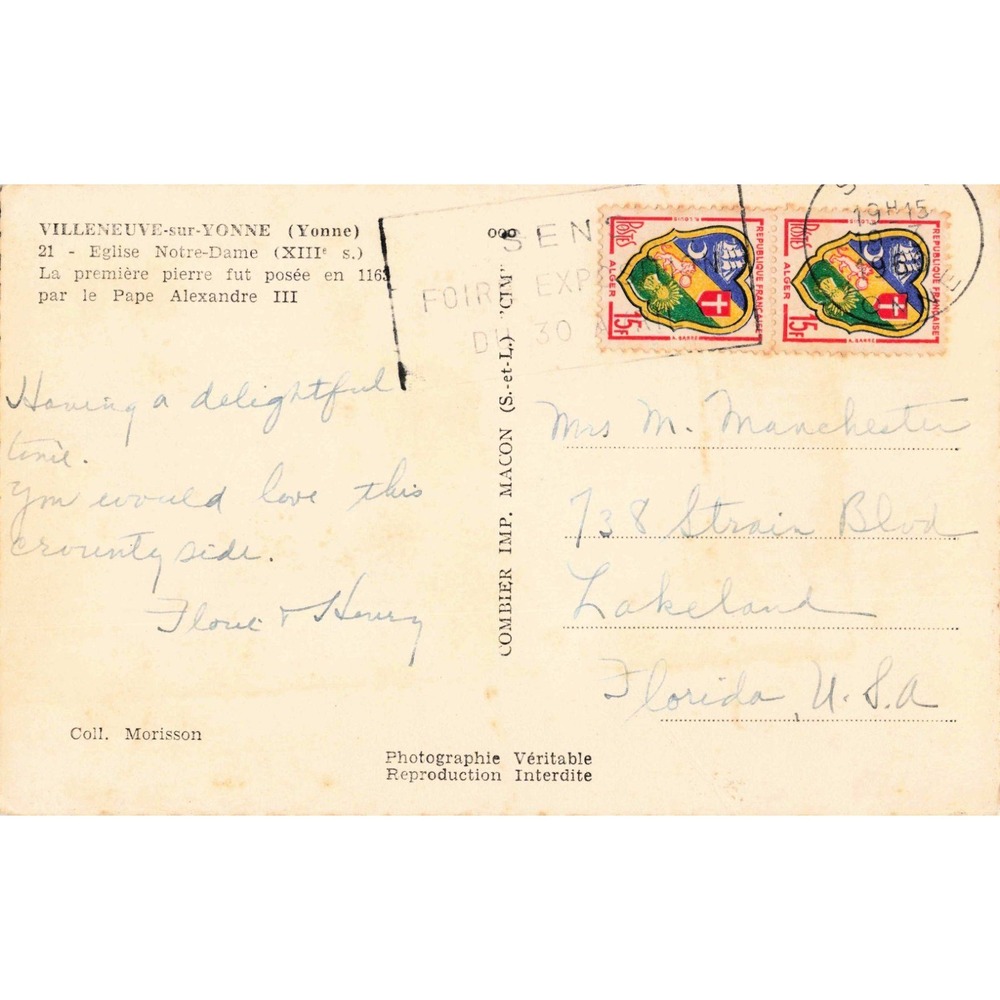 VILLENEUVE-sur-YONNE (Yonne)
21 - Eglise Notre-Dame (XIIIᵉ s.)
La première pierre fut posée en 1163
par le Pape Alexandre III
Having a delightful
time.
You would love this
crountyside.
& Henry
Coll. Morisson
COMBIER IMP. MACON (S.-et-L.) "CIM"
Photographie Véritable
Reproduction Interdite
SENS
FOIRE EXP
DU 30
POSTE
ALGER
15F
REPUBLIQUE FRANÇAISE
POSTE
ALGER
15F
REPUBLIQUE FRANÇAISE
19H15
Mrs M. Manchester
738 Strain Blvd
Lakeland
Florida, U.S.A